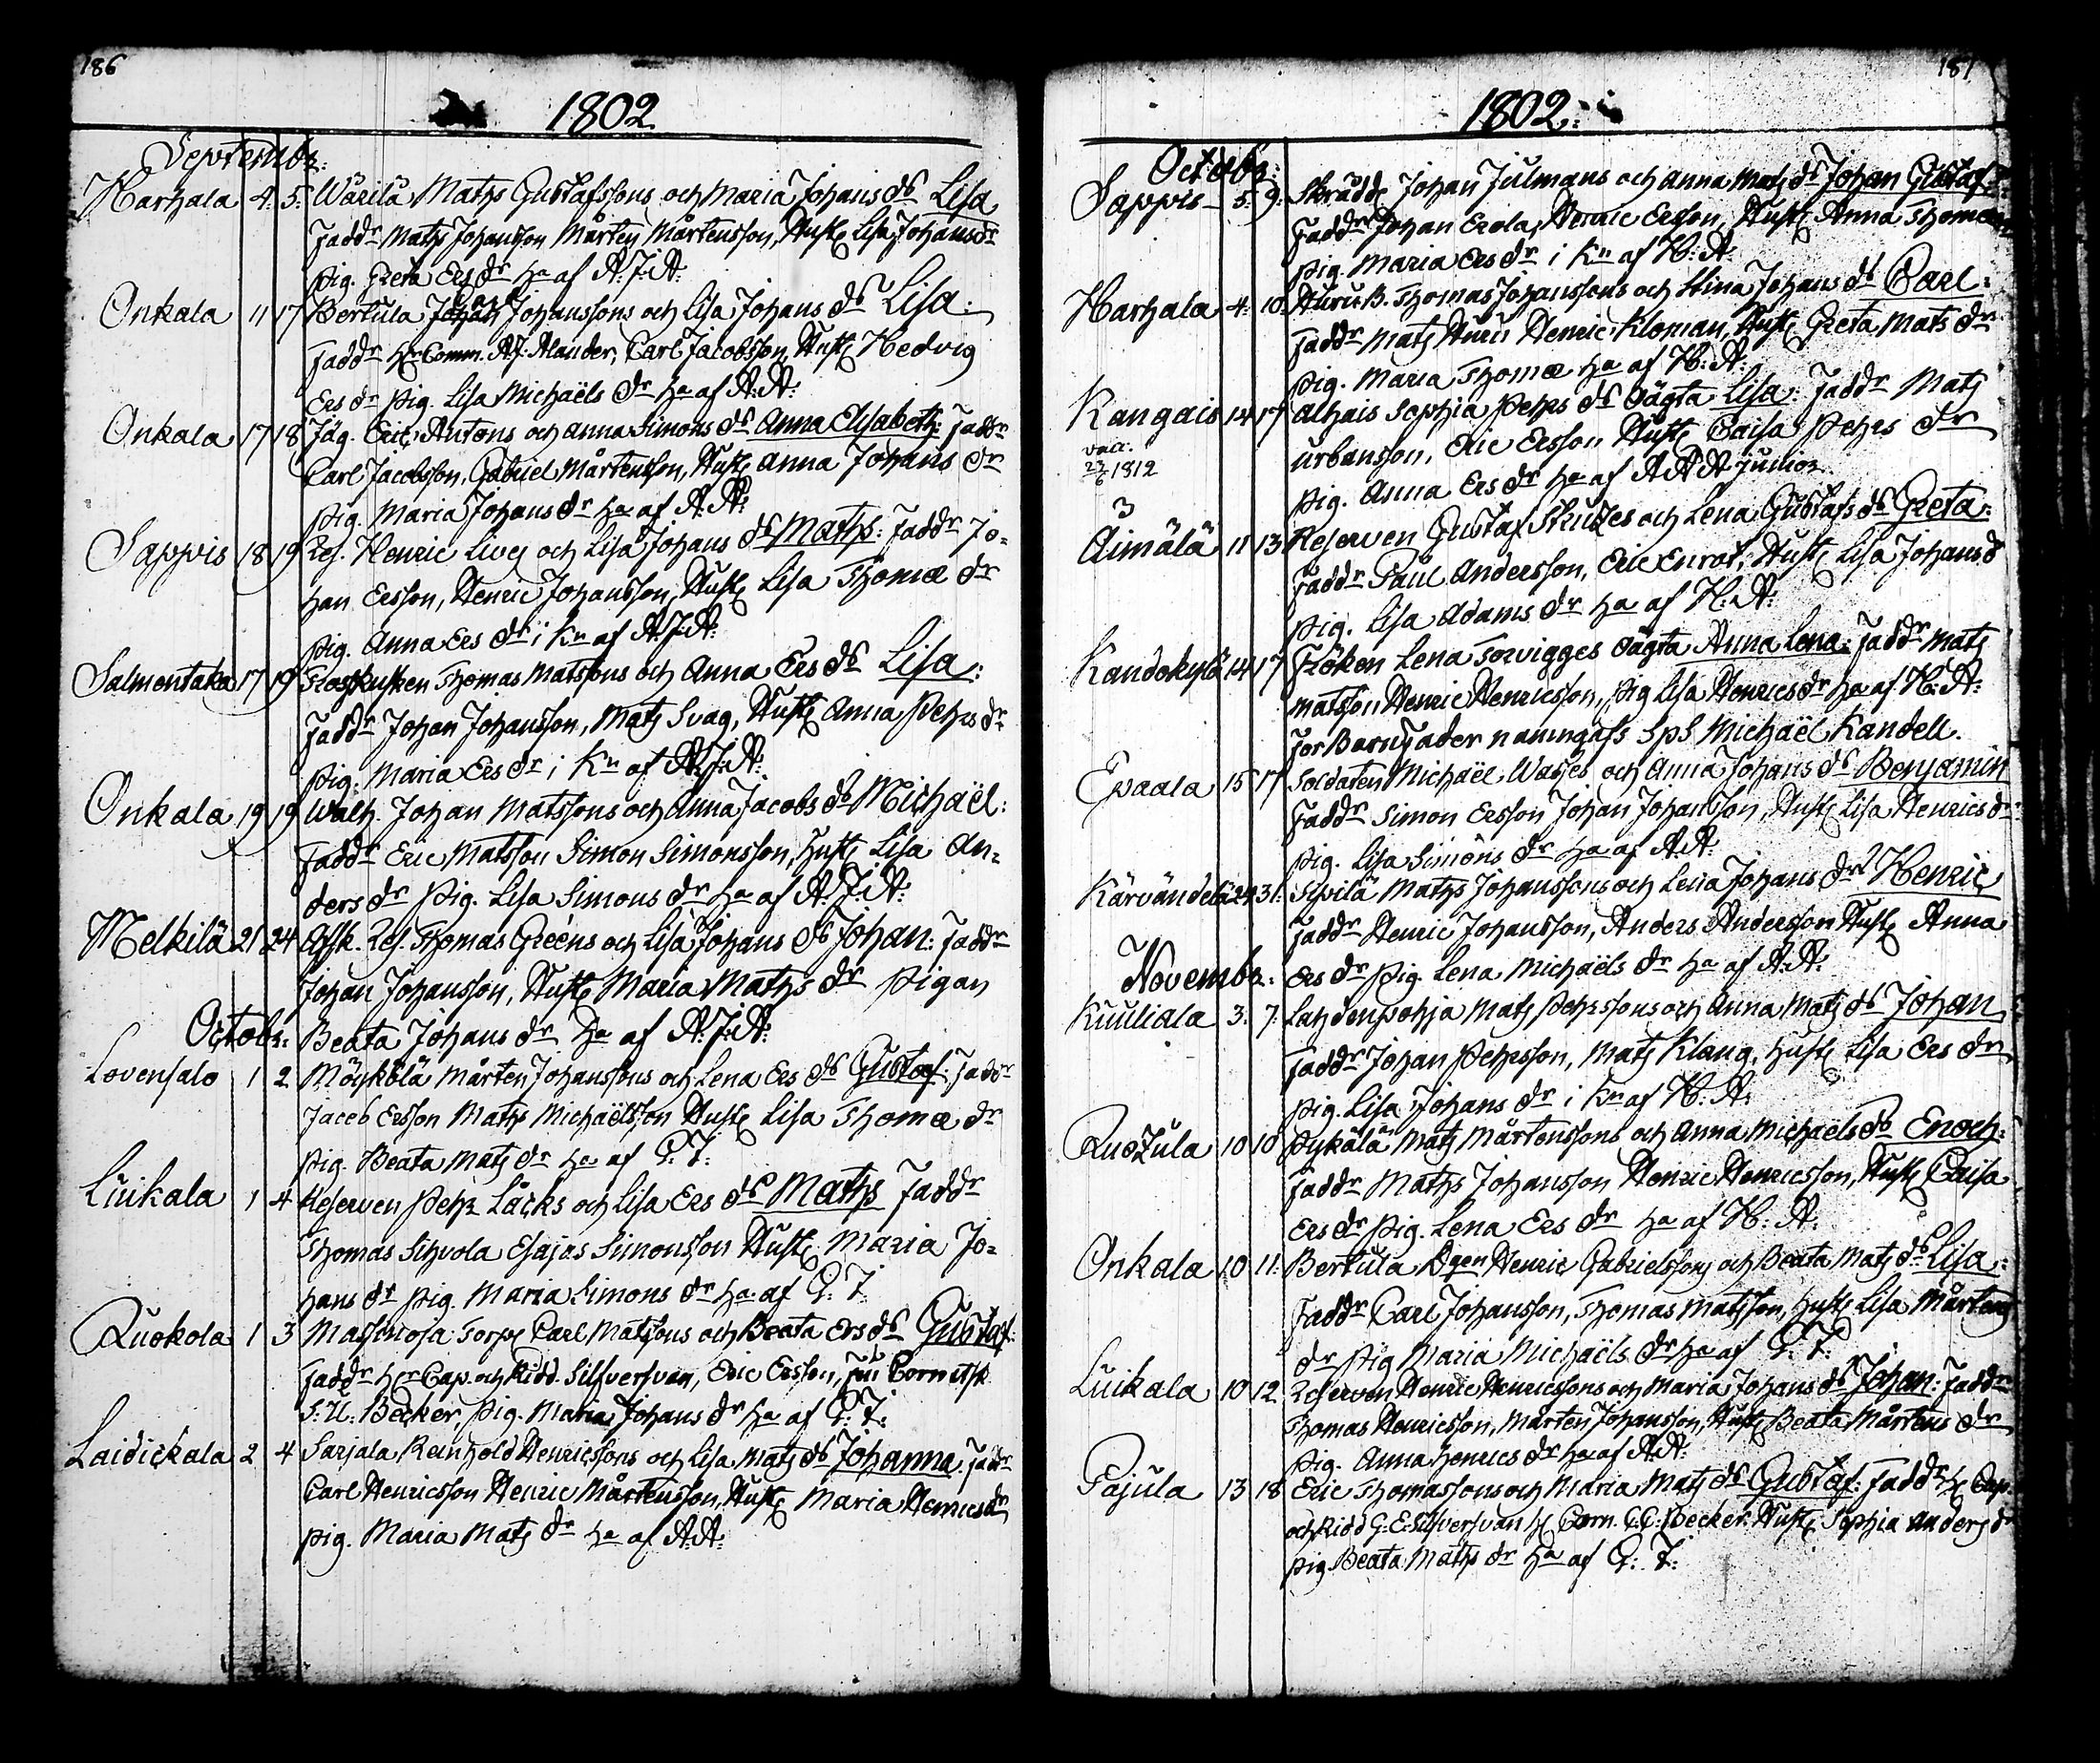 186
1802
Septembr:
Harhala 4. 5. Wärilä Maths Gustafssons och Maria Johans ds Lisa
Faddr Maths Johansson Mårten Mårtensson, Hust. Lisa Johansdr
pig. Greta Ers dr ha af A: J: A:
Carl
Onkala 11 17 Bertula Johan Johanssons och Lisa Johans ds Lisa:
Faddr Hr Comm. A.J. Alander, Carl Jacobsson, Hust. Hedvig
Ers dr pig. Lisa Michaëls dr ha af A: A:
Onkala 17 18 Jäg. Eric Antons och Anna Simons ds Anna Elisabeth: Faddr
Carl Jacobsson, Gabriel Mårtensson, Hust. Anna Johans dr
pig. Maria Johans dr ha af A: A:
Sappis 18 19 Res. Henric Livej och Lisa Johans ds Maths: Faddr Jo-
han Ersson, Henric Johansson, Hust. Lisa Thomæ dr
pig. Anna Ers dr i Kn af A: J: A:
Salmentaka 17 19 Thomas Matssons och Anna Ers ds Lisa:
Faddr Johan Johansson, Mats Svag, Hust. Anna Pehrs dr
pig: Maria Ers dr i Kn af A: J: A:
Onkala 19 19 Walh. Johan Matssons och Anna Jacobs ds Michaël:
Faddr Eric Matsson Simon Simonsson, Hust. Lisa An-
ders dr pig. Lisa Simons dr ha af A: J: A:
Melkilä 21 24 Afsk. Res. Thomas Greéns och Lisa Johans ds Johan: Faddr
Johan Johansson, Hust. Maria Maths dr pigan
Octobr: Beata Johans dr ha af A: J: A:
Lovensalo 1 2 Möykölä Mårten Johanssons och Lena Ers ds Gustaf: Faddr
Jacob Ersson Maths Michaëlsson Hust. Lisa Thomæ dr
pig. Beata Mats dr ha af G: T:
Luikala 1 4 Reserven Pehr Läcks och Lisa Ers ds Maths Faddr
Thomas Sihvola Esajas Simonsson Hust. Maria Jo-
hans dr pig. Maria Simons dr ha af G: T:
Ruokola 1 3 Torp. Carl Matssons och Beata Ers ds Gustaf:
Faddr Hr Cap. och Ridd. Silfversvan, Eric Ersson, Cornetsk
S: U: Becker, pig. Maria Johans dr ha af G: T:
Laidickala 2 4 Sarjala Reinhold Henricssons och Lisa Mats ds Johanna: Faddr
Carl Henricsson Henric Mårtensson, Hust. Maria Henricsdr
pig. Maria Mats dr ha af A: A:
187
1802:
Octobr:
Sappis 5. 9. Skrädd. Johan Julmans och Anna Mats ds Johan Gustaf:
Faddr Johan Erola, Henric Ersson, Hust. Anna Thomæ
pig. Maria Ers dr i Kn af H: A:
Harhala 4. 10. Huru B. Thomas Johanssons och Stina Johans ds Carl:
Faddr Mats Huru Henric Kloman, Hust. Greta Mats dr
pig. Maria Thomæ ha af H: A:
Kangais 14 17 Alhais Sophia Pehrs ds oägta Lisa: Faddr Mats
vacc.
23/6 1812
Urbansson, Eric Ersson Hust. Caisa Pehrs dr
pig. Anna Ers dr ha af A A A junior
3
Aimälä 11 13 Reserven Gustaf Skutes och Lena Gustafs ds Greta:
Faddr Paul Andersson, Eric Enrot, Hust. Lisa Johans d
pig. Lisa Adams dr ha af H: A:
Kandokylä 14 17 Fröken Lena Torvigges oägta Anna Lena: Faddr Mats
Matsson Henric Henricsson, pig Lisa Henricsdr ha af H: A:
för Barnfader namngafs SpS Michaël Kandell.
Evaala 15 17 Soldaten Michaël Wases och Anna Johans ds Benjamin
Faddr Simon Ersson Johan Johansson, Hust. Lisa Henrics dr
pig. Lisa Simons dr ha af A: A:
Kärvändelä 29 31: Sipilä Maths Johanssons och Lena Johans dr Henric
Faddr Henric Johansson, Anders Andersson Hust. Anna
Novembr: Ers dr pig. Lena Michaëls dr ha af A: A:
Kuuliala 3. 7: Lahdenpohja Mats Pehrssons och Anna Mats ds Johan
Faddr Johan Pehrsson, Mats Klang, Hust. Lisa Ers dr
pig. Lisa Johans dr i Kn af H: A:
Rustula 10 10 Pykälä Mats Mårtenssons och Anna Michaëls ds Enoch:
Faddr Maths Johansson Henric Henricsson, Hust. Caisa
Ers dr pig. Lena Ers dr ha af H: A:
Onkala 10 11: Bertula Dgen Henric Gabrielssons och Beata Mats ds Lisa:
Faddr Carl Johansson, Thomas Matsson, Hust. Lisa Mårtens
dr pig Maria Michaëls dr ha af G: T:
Luikala 10 12 Reserven Henric Henricssons och Maria Johans ds Johan: Faddr
Thomas Henricsson, Mårten Johansson, Hust. Beata Mårtens dr
pig. Anna Henrics dr ha af A: A:
Pajula 13 18 Eric Thomassons och Maria Mats ds Gustaf: Faddr Hr Cap.
och Ridd G. E. Silfversvan Hr Corn. C. C: Becker. Hust. Sophia Anders dr
pig Beata Maths dr ha af G: T: